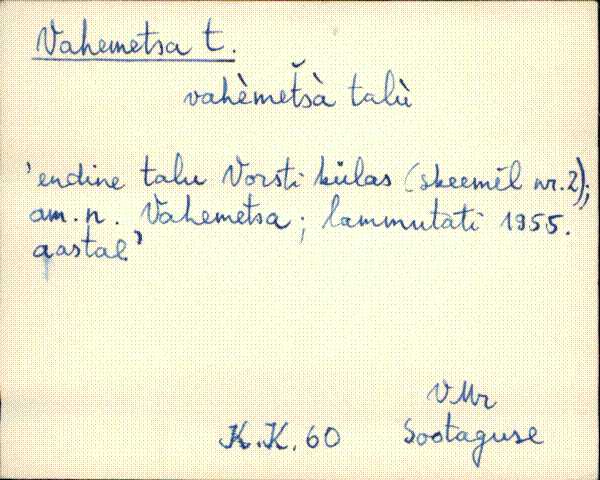 Vahemetsa t.
vahèmet̆sà talù
'endine talu Vorsti külas (skeemil nr. 2);
am. n. Vahemetsa; lammutati 1955.
aastal'
VMr
K.K. 60 Sootaguse